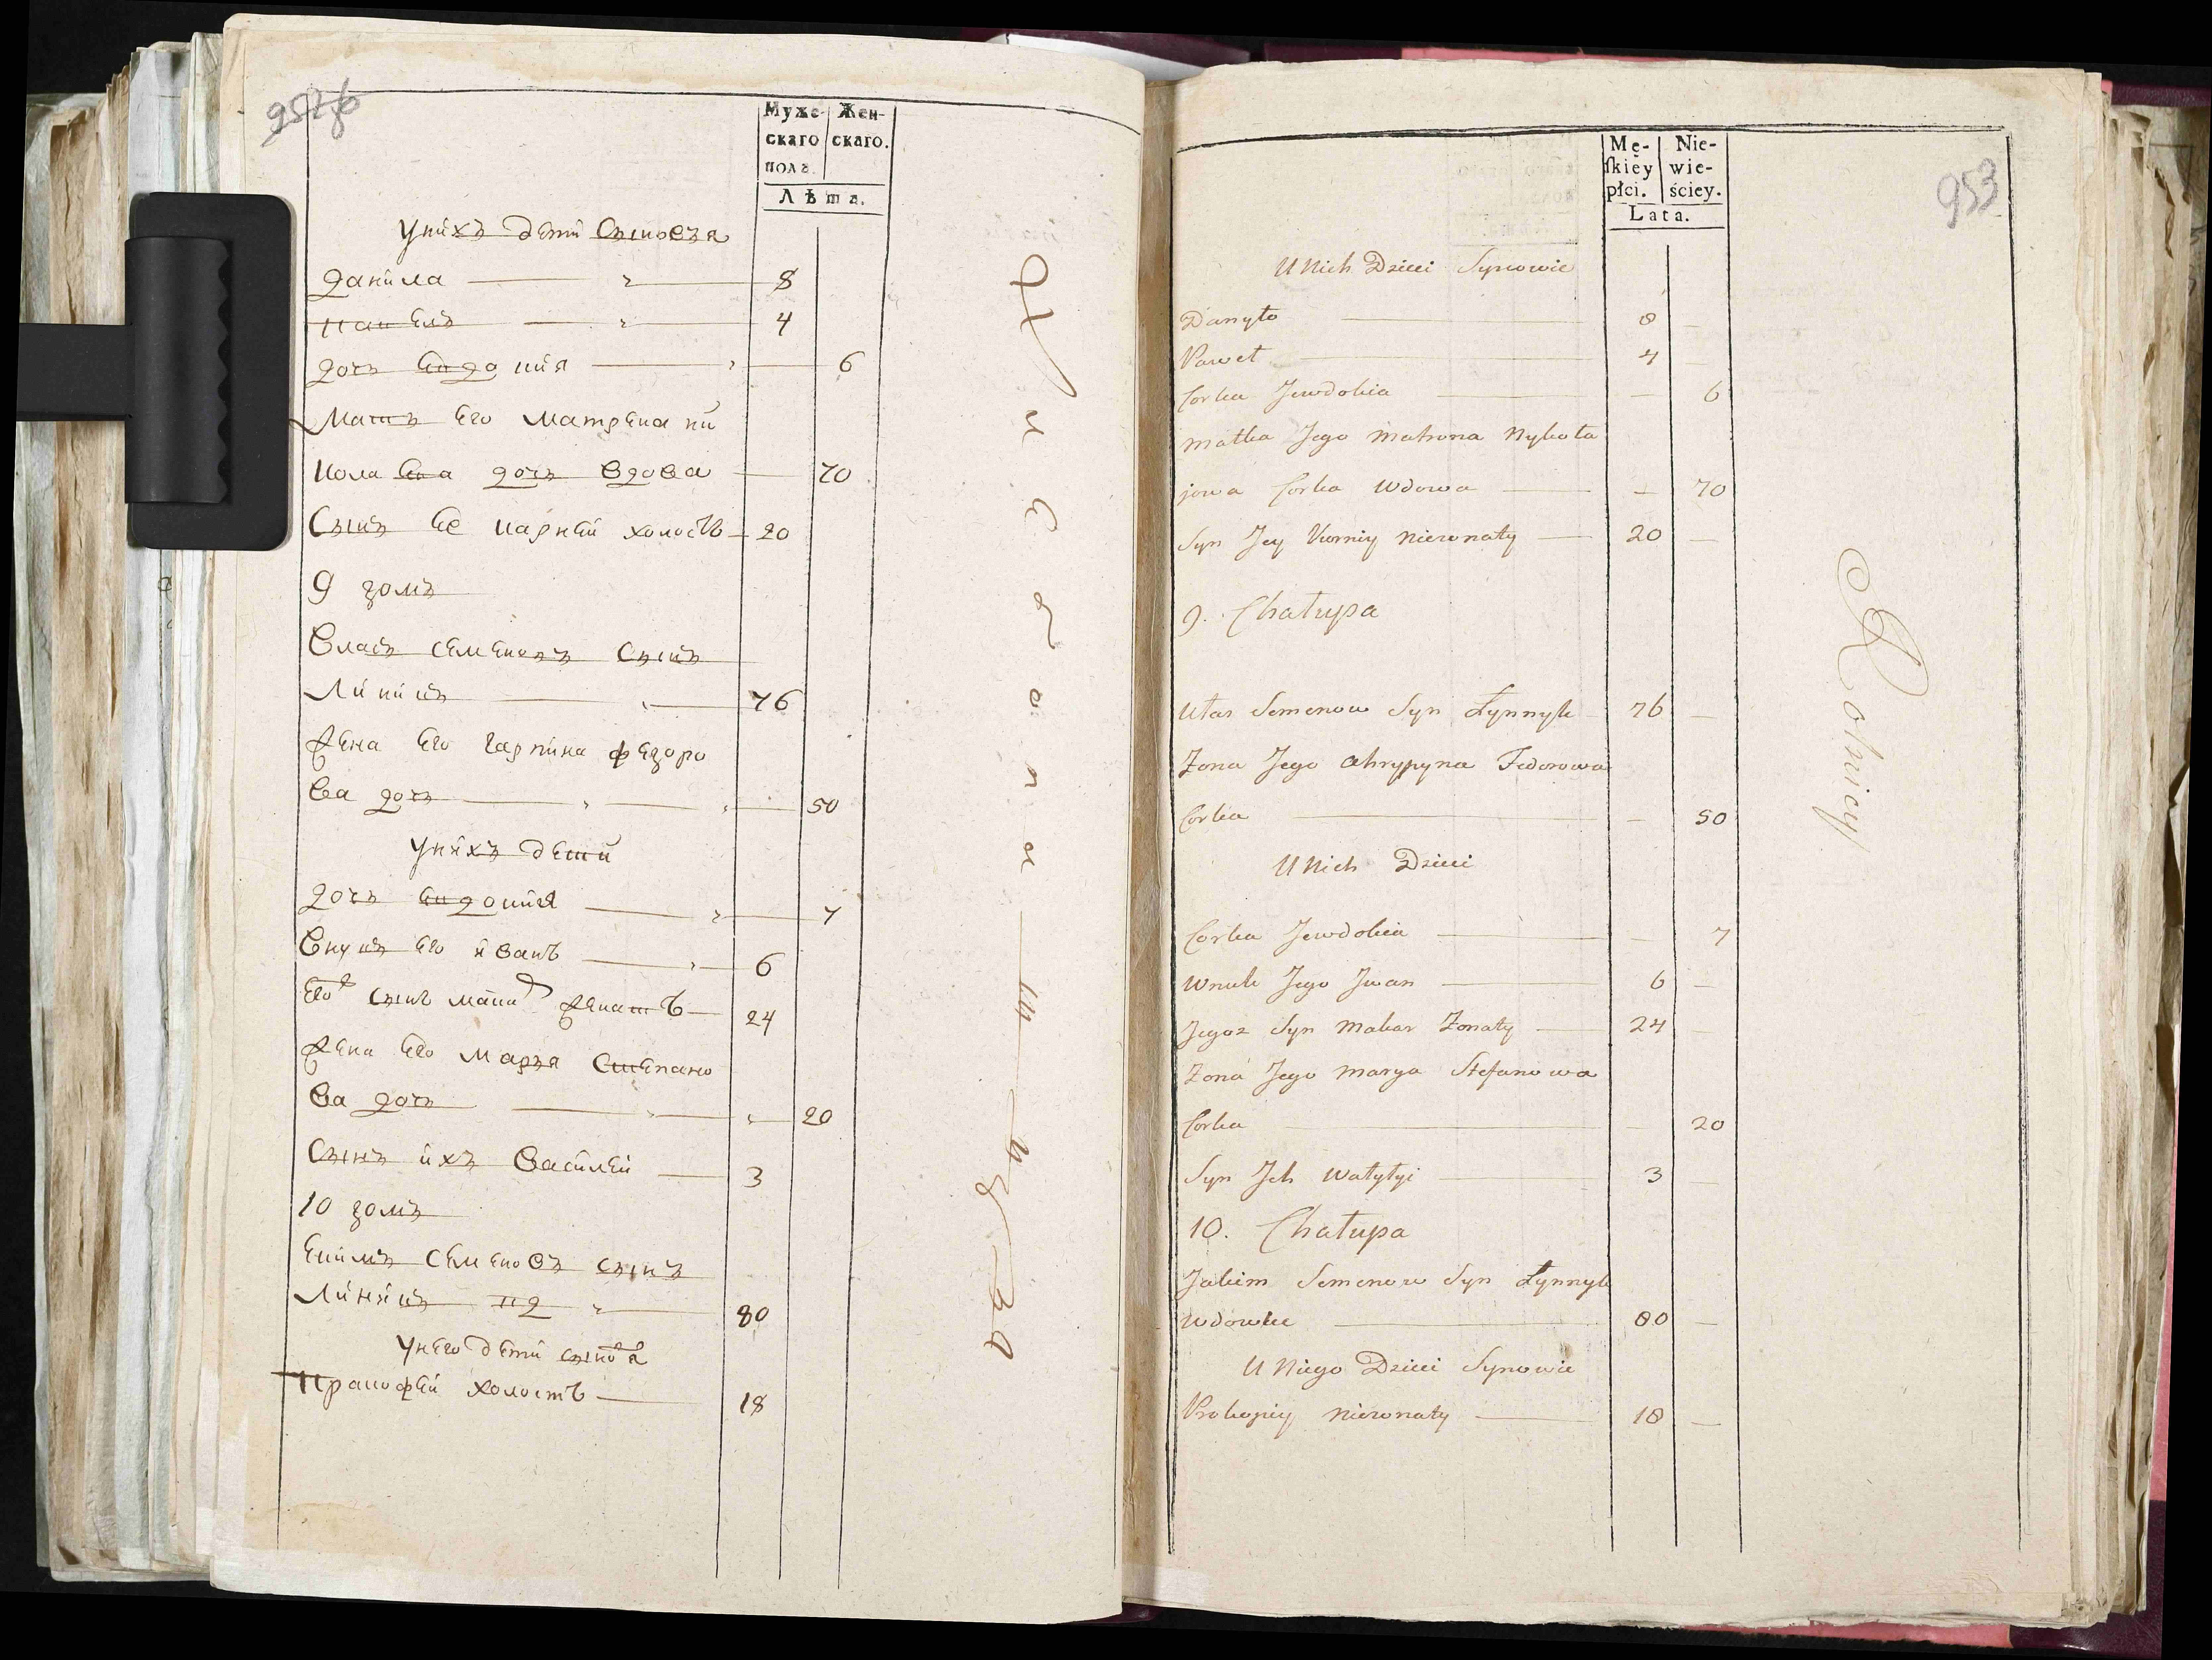 952об
Муже- Жен-
скаго скаго.
пола.
Лѣта.
Унихъ дети Сыновъя
Данила 8
Павелъ 4
дочь Евдокия 6
Мать Его Матрена ни
колаева дочь вдова 70
Сынъ Ее карней холостъ 20
9 домъ
Власъ Семеновъ Сынъ
Линикъ 76
Жена Его Гарпина Федоро
ва дочь 50
Унихъ дети
дочь Евдокия 7
Внукъ Его иванъ 6
Его Сынъ макаръ женатъ 24
Жена Его Маръя Степано
ва дочь 20
Сынъ ихъ Василей 3
10 домъ
Екимъ Семеновъ Сынъ
Линникъ вд 80
Унего дети сыновя
Пракофей холостъ 18
953
Mę- Nie-
ſkiéy wie-
płci. ściey.
Lata.
U Nich Dzieci Synowie
Danyło 8
Paweł 4
Corka Jewdokia 6
Matka Jego Matrona Nykoła
jowa Corka Wdowa 70
Syn Jey Korniy Nieżonaty 20
9. Chałupa
Ułas Semenow Syn Łynnyk 76
Żona Jego Ahrypyna Fedorowa
Corka 50
U Nich Dzieci
Corka Jewdokia 7
Wnuk Jego Jwan 6
Jegoż Syn Makar Żonaty 24
Żona Jego Marya Stefanowa
Corka 20
Syn Jch Wasylyi 3
10. Chałupa
Jakim Semenow Syn Łynnyk
Wdowiec 80
U Niego Dzieci Synowie
Prokopiy Nieżonaty 18